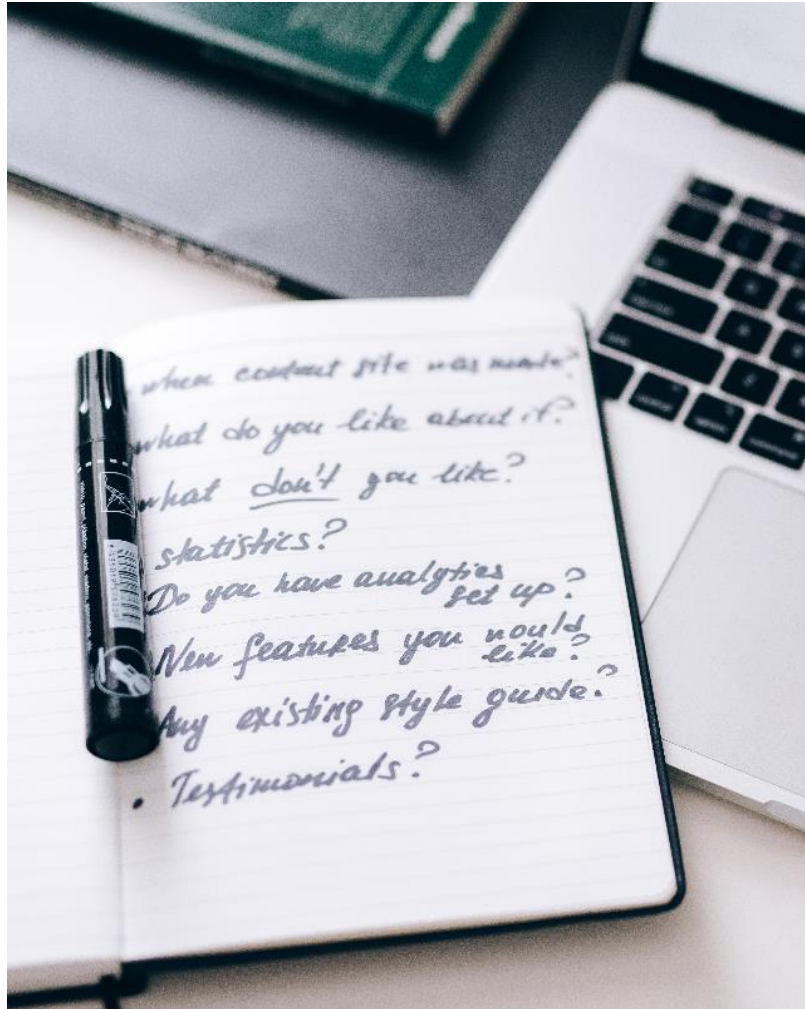 when contact site was made?
what do you like about it?
what don't you like?
statistics?
Do you have analytics
set up?
New features you would
like?
Any existing style guide?
• Testimonials?